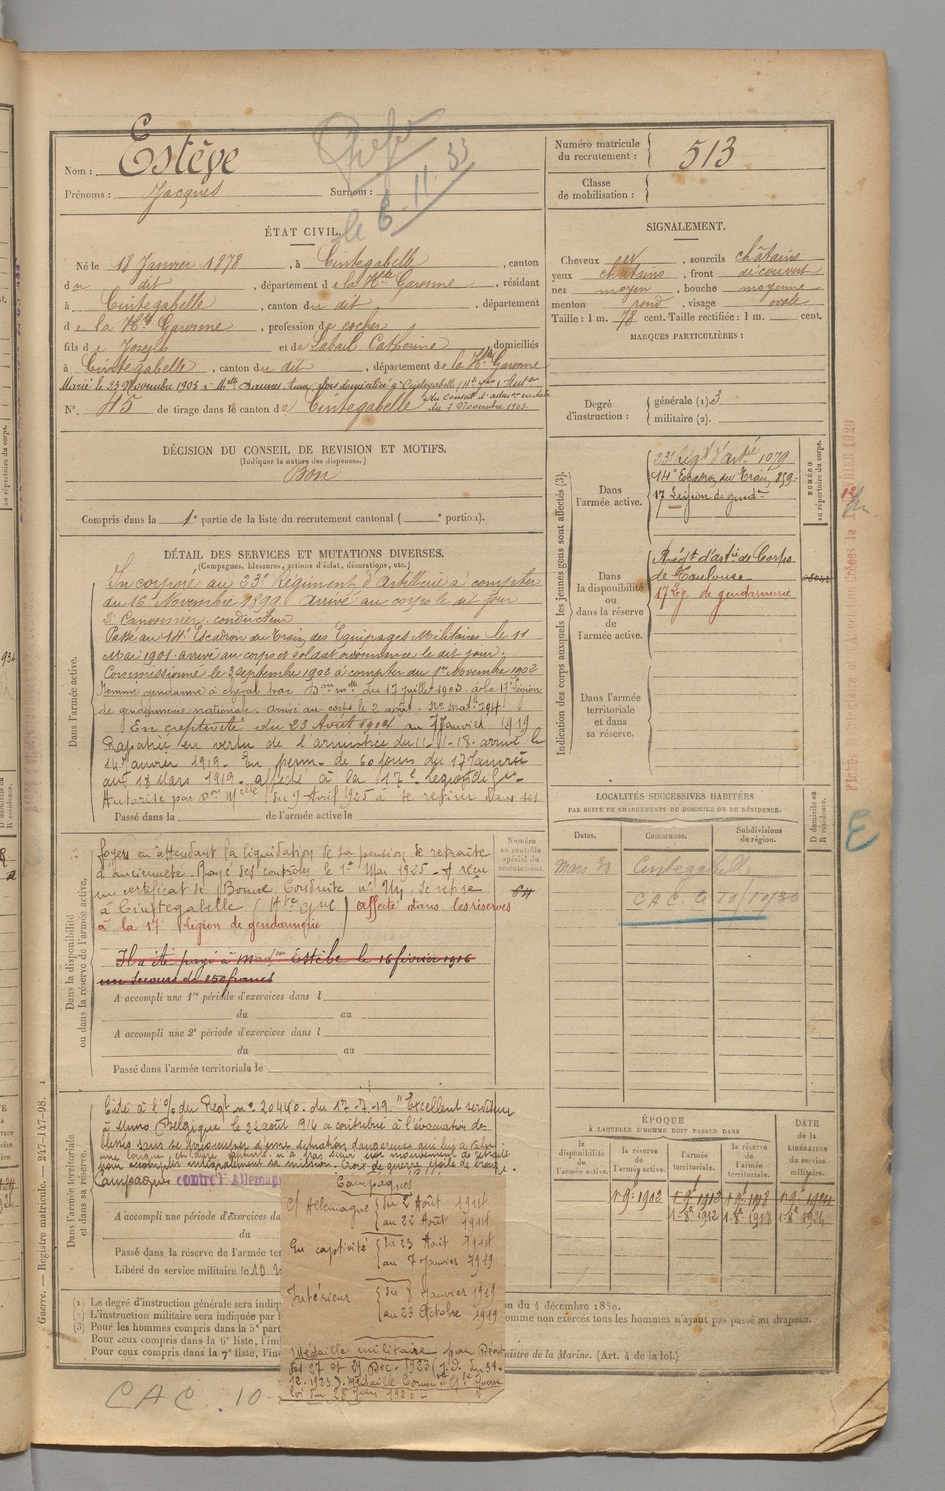 Nom : Estève
Prénoms : Jacques Surnom :
Numéro matricule du recrutement : 513
Classe de mobilisation :
le 6.11.33
ÉTAT CIVIL.
Né le 18 Janvier 1878, à Cintegabelle, canton
du dit, département de la Hte Garonne, résidant
à Cintegabelle, canton du dit, département
de la Hte Garonne, profession de cocher
fils de Joseph et de Labail Catherine, domiciliés
à Cintegabelle, canton du dit, département de la Hte Garonne
Marié le 23 Novembre 1903 à Melle
du Conseil d'admon en date
du 2 Novembre 1903
N°. 45 de tirage dans le canton de Cintegabelle
SIGNALEMENT.
Cheveux , sourcils châtains
yeux châtains, front découvert
nez moyen, bouche moyenne
menton rond, visage ovale
Taille : 1 m. 78 cent. Taille rectifiée : 1 m. cent.
MARQUES PARTICULIÈRES :
Degré d'instruction : générale (1) 3
militaire (2).
DÉCISION DU CONSEIL DE REVISION ET MOTIFS.
(Indiquer la nature des dispenses.)
Bon
Compris dans la 1e partie de la liste du recrutement cantonal ( e portion).
DÉTAIL DES SERVICES ET MUTATIONS DIVERSES.
(Campagnes, blessures, actions d'éclat, décorations, etc.)
Dans l'armée active.
Incorporé au 23e Régiment d'Artillerie à compter
du 16 Novembre 1899. Arrivé au corps le dit jour
2e Canonnier conducteur
Passé au 14e Escadron du Train des Equipages Militaires le 11
Mai 1901. arrivé au corps et soldat ordonnance le dit jour.
Commissionné le 3 septembre 1902 à compter du 1er Novembre 1902
Nommé gendarme à cheval par Don mlle du 17 juillet 1903 à la 17e légion
de gendarmerie nationale. arrivé au corps le 2 août. No mate 794.
En captivité du 23 Août 1914 au 7 Janvier 1919
Rapatrié en vertu de l'armistice du 11-11-18. arrivé le
14 Janvier 1919. En perm. de 60 jours du 17 Janvier
au 18 Mars 1919. affecté à la 17e légion de Gie
Autorisé par Don Mlle du 9 Avril 1925 à se retirer dans ses
Passé dans la de l'armée active le
Dans la disponibilité ou dans la réserve de l'armée active.
foyers en attendant la liquidation de sa pension de retraite
d'ancienneté. Rayé des contrôles le 1er Mai 1925. A reçu
un certificat de Bonne Conduite. Se retire
à Cintegabelle (Hte Gne) affecté dans les réserves
à la 17 légion de gendarmerie
Il a été payé à Madme Estèbe le 16 février 1916
un secours de 150 francs
A accompli une 1re période d'exercices dans l
du au
A accompli une 2e période d'exercices dans l
du au
Passé dans l'armée territoriale le
Numéro au contrôle spécial du recrutement.
Dans l'armée territoriale et dans sa réserve.
Cité à l'% du Regt no 20440 du 17-7-19. "Excellent serviteur
à Muno (Belgique) le 22 août 1914 a contribué à l'évacuation des
blessés sans se préoccuper d'une situation dangereuse qui lui a valu
une longue et dure captivité
pour accomplir intégralement sa mission. Croix de guerre étoile de bronze.
Campagnes contre l'Allemagne
A accompli une période d'exercices da
du
Passé dans la réserve de l'armée ter
Libéré du service militaire le 10
Campagnes
c/ Allemagne du 2 Août 1914
au 22 Août 1914
En captivité du 23 Août 1914
au 7 Janvier 1919
Intérieur du 8 Janvier 1919
au 23 Octobre 1919
Médaille militaire par Décret
des 27 et 29 Dec. 1923 (J.O. du 31.
12.1923). Médaille Comm. ve Gde Guerre
loi du 23 Juin 1920
Indication des corps auxquels les jeunes gens sont affectés (3).
Dans l'armée active.
23e Régt d'artie 1079
14e Escadron du Train, 859.
17 Légion de gendie
NUMÉRO au répertoire du corps.
Dans la disponibilité ou dans la réserve de l'armée active.
Régt d'artie de Corps
de Toulouse
17 Lég. de gendarmerie
Dans l'armée territoriale et dans sa réserve.
LOCALITÉS SUCCESSIVES HABITÉES
PAR SUITE DE CHANGEMENTS DE DOMICILE OU DE RÉSIDENCE.
D domicile ou R résidence.
Dates. Communes. Subdivisions de région.
Mars 31 Cintegabelle
CAC. le 10/10/30
E
ÉPOQUE
À LAQUELLE L'HOMME DOIT PASSER DANS
la disponibilité de l'armée active.
la réserve de l'armée active.
l'armée territoriale.
la réserve de l'armée territoriale.
DATE de la LIBÉRATION du service militaire.
(1) Le degré d'instruction générale sera indiq
(2) L'instruction militaire sera indiquée par l
(3) Pour les hommes compris dans la 5e part
Pour ceux compris dans la 6e liste, l'ind
Pour ceux compris dans la 7e liste, l'ind
on du 4 décembre 1889.
omme non exercés tous les hommes n'ayant pas passé au drapeau.
inistre de la Marine. (Art. 4 de la loi.)
Guerre. — Registre matricule. — 247-147-98.
CAC 10